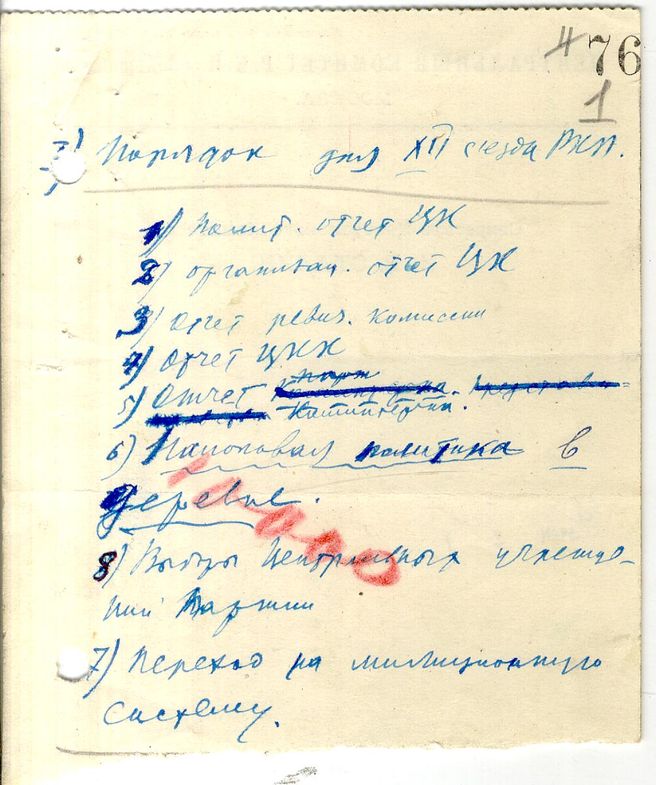 4 76
1
Порядок дня XII съезда РКП.
1) Полит. отчет ЦК
2) организац. отчет ЦК
3) Отчет ревиз. комиссии
4) Отчет ЦКК
5) Отчет
Коминтерна.
6) Налоговая политика в
деревне.
8) Выборы Центральных учрежде-
ний партии
7) Переход на милиционную
систему.